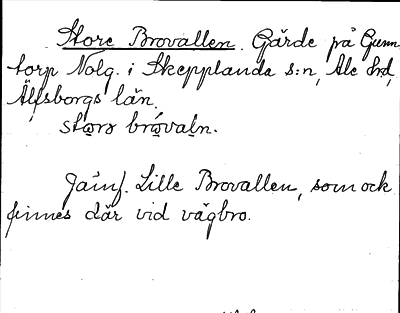 Store Brovallen. Gärde på Gunn
torp Nolg. i Skepplanda s:n, Ale hd,
Älfsborgs län.
starə brovaln.
Jämf. Lille Brovallen, som ock
finnes där vid vägbro.